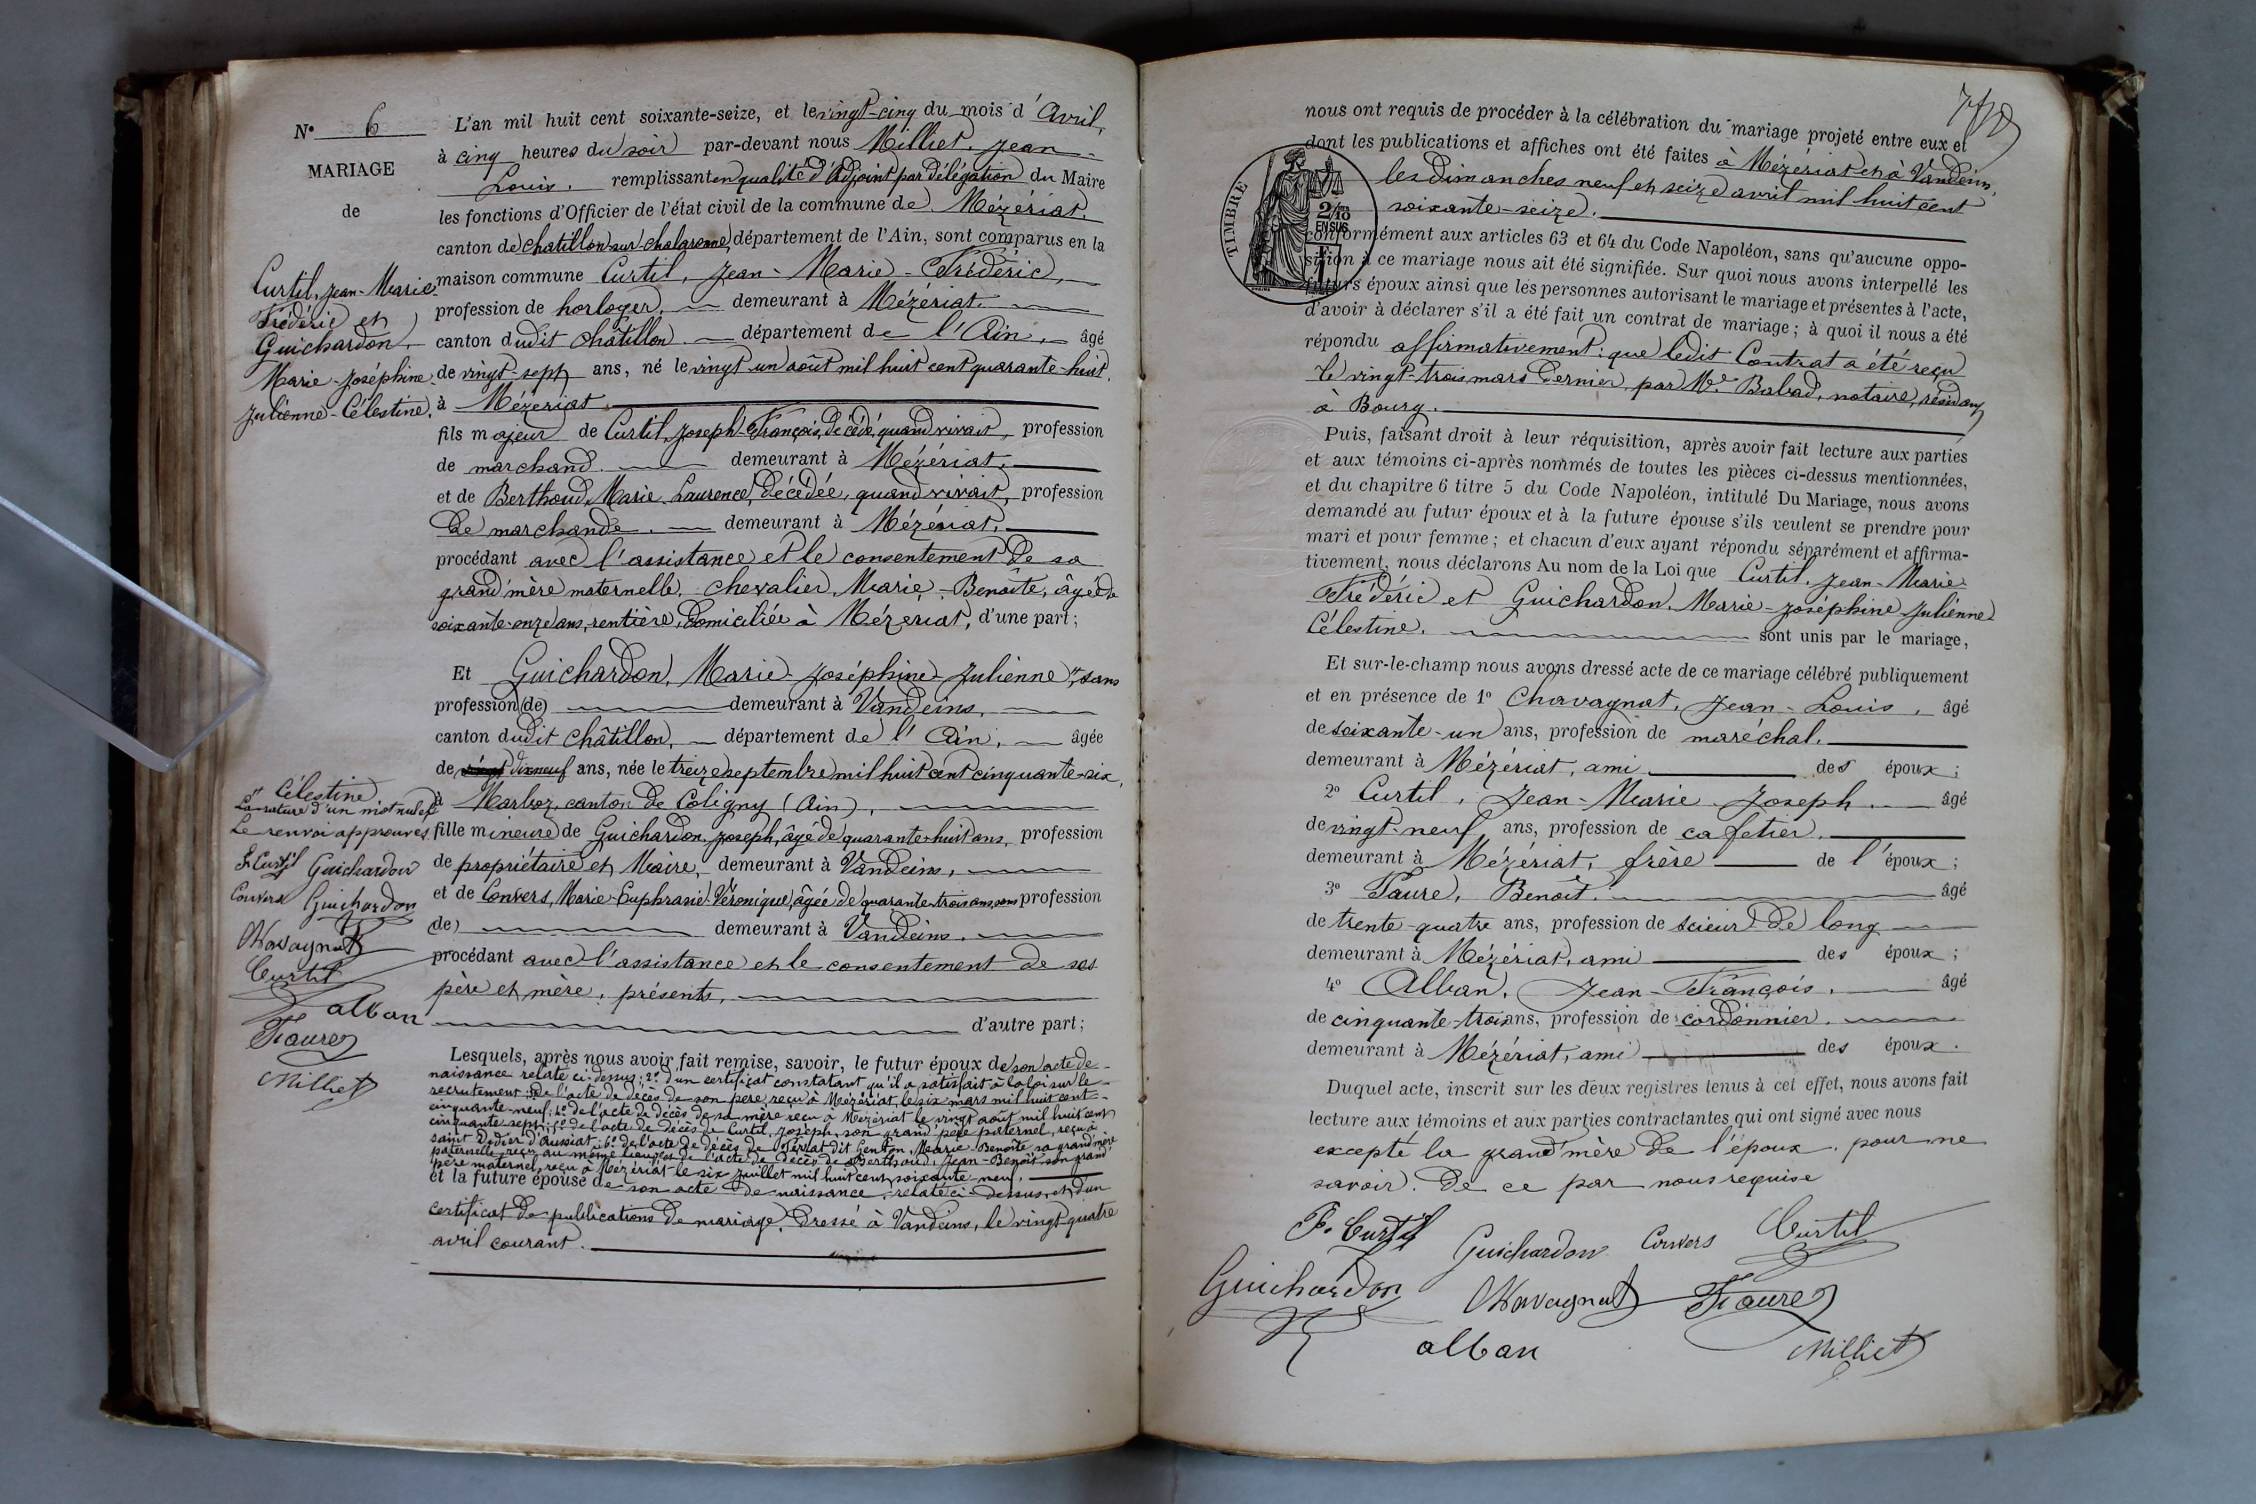 N° 6
MARIAGE
de
Curtil, Jean-Marie
Frédéric et
Guichardon,
Marie-Joséphine
Julienne-Célestine.
L'an mil huit cent soixante-seize, et le vingt-cinq du mois d'Avril,
à cinq heures du soir par-devant nous Milliet, Jean-
Louis. remplissant en qualité d'Adjoint par délégation du Maire
les fonctions d'Officier de l'état civil de la commune de Mézériat.
canton de Chatillon-sur-Chalaronne, département de l'Ain, sont comparus en la
maison commune Curtil, Jean-Marie-Frédéric,
profession de horloger, demeurant à Mézériat.
canton dudit Châtillon. département de l'Ain, âgé
de vingt-sept ans, né le vingt-un août mil huit cent quarante-huit,
à Mézériat.
fils majeur de Curtil, Joseph-François, décédé, quand vivait, profession
de marchand. demeurant à Mézériat,
et de Berthoud, Marie-Laurence, décédée, quand vivait, profession
de marchande. demeurant à Mézériat,
procédant avec l'assistance et le consentement de sa
grand'mère maternelle, Chevalier, Marie-Benoîte, âgée de
soixante-onze ans, rentière, domiciliée à Mézériat, d'une part;
Et Guichardon, Marie-Joséphine-Julienne", sans
profession (de) demeurant à Vandeins,
canton dudit Châtillon, département de l'Ain, âgée
de dix neuf ans, née le treize septembre mil huit cent cinquante-six,
à Marboz, canton de Coligny (Ain),
fille mineure de Guichardon, Joseph, âgé de quarante-huit ans, profession
de propriétaire et Maire, demeurant à Vandeins,
et de Convers, Marie-Euphrasie-Véronique, âgée de quarante-trois ans, sans profession
(de) demeurant à Vandeins.
procédant avec l'assistance et le consentement de ses
père et mère, présents,
d'autre part;
" Célestine
La rature d'un mot nul et
Le renvoi approuvés
F. Curtil Guichardon
Convers Guichardon
Chavagnat
Curtil
alban
Faure
Milliet
Lesquels, après nous avoir fait remise, savoir, le futur époux de son acte de
naissance relaté ci-dessus; 2° d'un certificat constatant qu'il a satisfait à la loi sur le
recrutement; 3° de l'acte de décès de son père, reçu à Mézériat, le six mars mil huit cent
cinquante-neuf; 4° de l'acte de décès de sa mère reçu à Mézériat le vingt août mil huit cent
cinquante sept; 5° de l'acte de décès de Curtil, Joseph, son grand'père paternel, reçu à
saint Didier d'Aussiat; 6° de l'acte de décès de dit Genton, Marie-Benoîte sa grand'mère
paternelle reçu au même lieu, et de l'acte de décès de Berthoud, Jean-Benoît son grand'
père maternel, reçu à Mézériat le six juillet mil huit cent soixante-neuf.
et la future épouse de son acte de naissance, relaté ci-dessus, et d'un
certificat de publications de mariage, dressé à Vandeins, le vingt-quatre
avril courant.
nous ont requis de procéder à la célébration du mariage projeté entre eux et
dont les publications et affiches ont été faites à Mézériat et à Vandeins,
les dimanches neuf et seize avril mil huit cent
soixante-seize.
TIMBRE
2/10
EN SUS
conformément aux articles 63 et 64 du Code Napoléon, sans qu'aucune oppo-
sition à ce mariage nous ait été signifiée. Sur quoi nous avons interpellé les
futurs époux ainsi que les personnes autorisant le mariage et présentes à l'acte,
d'avoir à déclarer s'il a été fait un contrat de mariage; à quoi il nous a été
répondu affirmativement: que ledit Contrat a été reçu
le vingt-trois mars dernier par Me Babad, notaire, résidant
à Bourg.
Puis, faisant droit à leur réquisition, après avoir fait lecture aux parties
et aux témoins ci-après nommés de toutes les pièces ci-dessus mentionnées,
et du chapitre 6 titre 5 du Code Napoléon, intitulé Du Mariage, nous avons
demandé au futur époux et à la future épouse s'ils veulent se prendre pour
mari et pour femme; et chacun d'eux ayant répondu séparément et affirma-
tivement, nous déclarons Au nom de la Loi que Curtil, Jean-Marie
Frédéric et Guichardon, Marie-Joséphine-Julienne
Célestine. sont unis par le mariage,
Et sur-le-champ nous avons dressé acte de ce mariage célébré publiquement
et en présence de 1° Chavagnat, Jean-Louis, âgé
de soixante-un ans, profession de maréchal.
demeurant à Mézériat, ami des époux;
2° Curtil, Jean-Marie-Joseph. âgé
de vingt-neuf ans, profession de cafetier.
demeurant à Mézériat, frère de l'époux;
3° Faure, Benoît. âgé
de trente-quatre ans, profession de scieur de long
demeurant à Mézériat, ami des époux;
4° Alban, Jean-François. âgé
de cinquante-trois ans, profession de cordonnier.
demeurant à Mézériat, ami des époux.
Duquel acte, inscrit sur les deux registres tenus à cet effet, nous avons fait
lecture aux témoins et aux parties contractantes qui ont signé avec nous
excepté la grand'mère de l'époux, pour ne
savoir. De ce par nous requise
F. Curtil Guichardon Convers Curtil
Guichardon Chavagnat Faure
alban Milliet